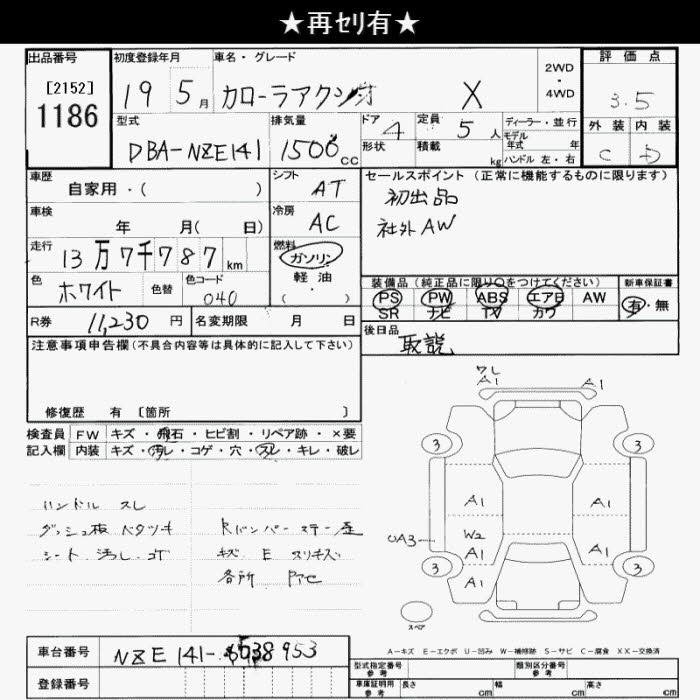 ★再セリ有★
出品番号 初度登録年月 車名・グレード 2WD・4WD 評価点
[2152]
1186
19 5月 カローラアクシオ X 3.5
型式 排気量 ドア 形状 定員 積載 kg ディーラー・並行 モデル年式 年 ハンドル 左・右 外装 内装
DBA-NZE141 1500cc 4 5人 C D
車歴 自家用・( ) シフト AT
セールスポイント(正常に機能するものに限ります)
初出品
社外AW
車検 年 月( 日) 冷房 AC
走行 13万7千787km 燃料 ガソリン 軽油 ・( )
色 ホワイト 色替 色コード 040
装備品(純正品に限り○をつけてください) 新車保証書
PS PW ABS エアB AW 有・無
SR ナビ TV カワ
R券 11,230円 名変期限 月 日
後日品 取説
注意事項申告欄(不具合内容等は具体的に記入して下さい)
修復歴 有 〔箇所 〕
検査員 FW キズ・飛石・ヒビ割・リペア跡・×要
記入欄 内装 キズ・汚レ・コゲ・穴・スレ・キレ・破レ
ワレ
A1 A1
3 3
A1 A1
UA3 W2
A1 A1
3 3
A1
スペア
ハンドル スレ
ダッシュ板 ベタツキ
シート 汚レ
Rバンパー ステー
キズ E スリキズ
各所
A－キズ E－エクボ U－凹み W－補修跡 S－サビ C－腐食 XX－交換済
車台番号 NZE141-
登録番号
型式指定番号 参考 類別区分番号 参考
車庫証明用 参考 長さ cm 幅 cm 高さ cm